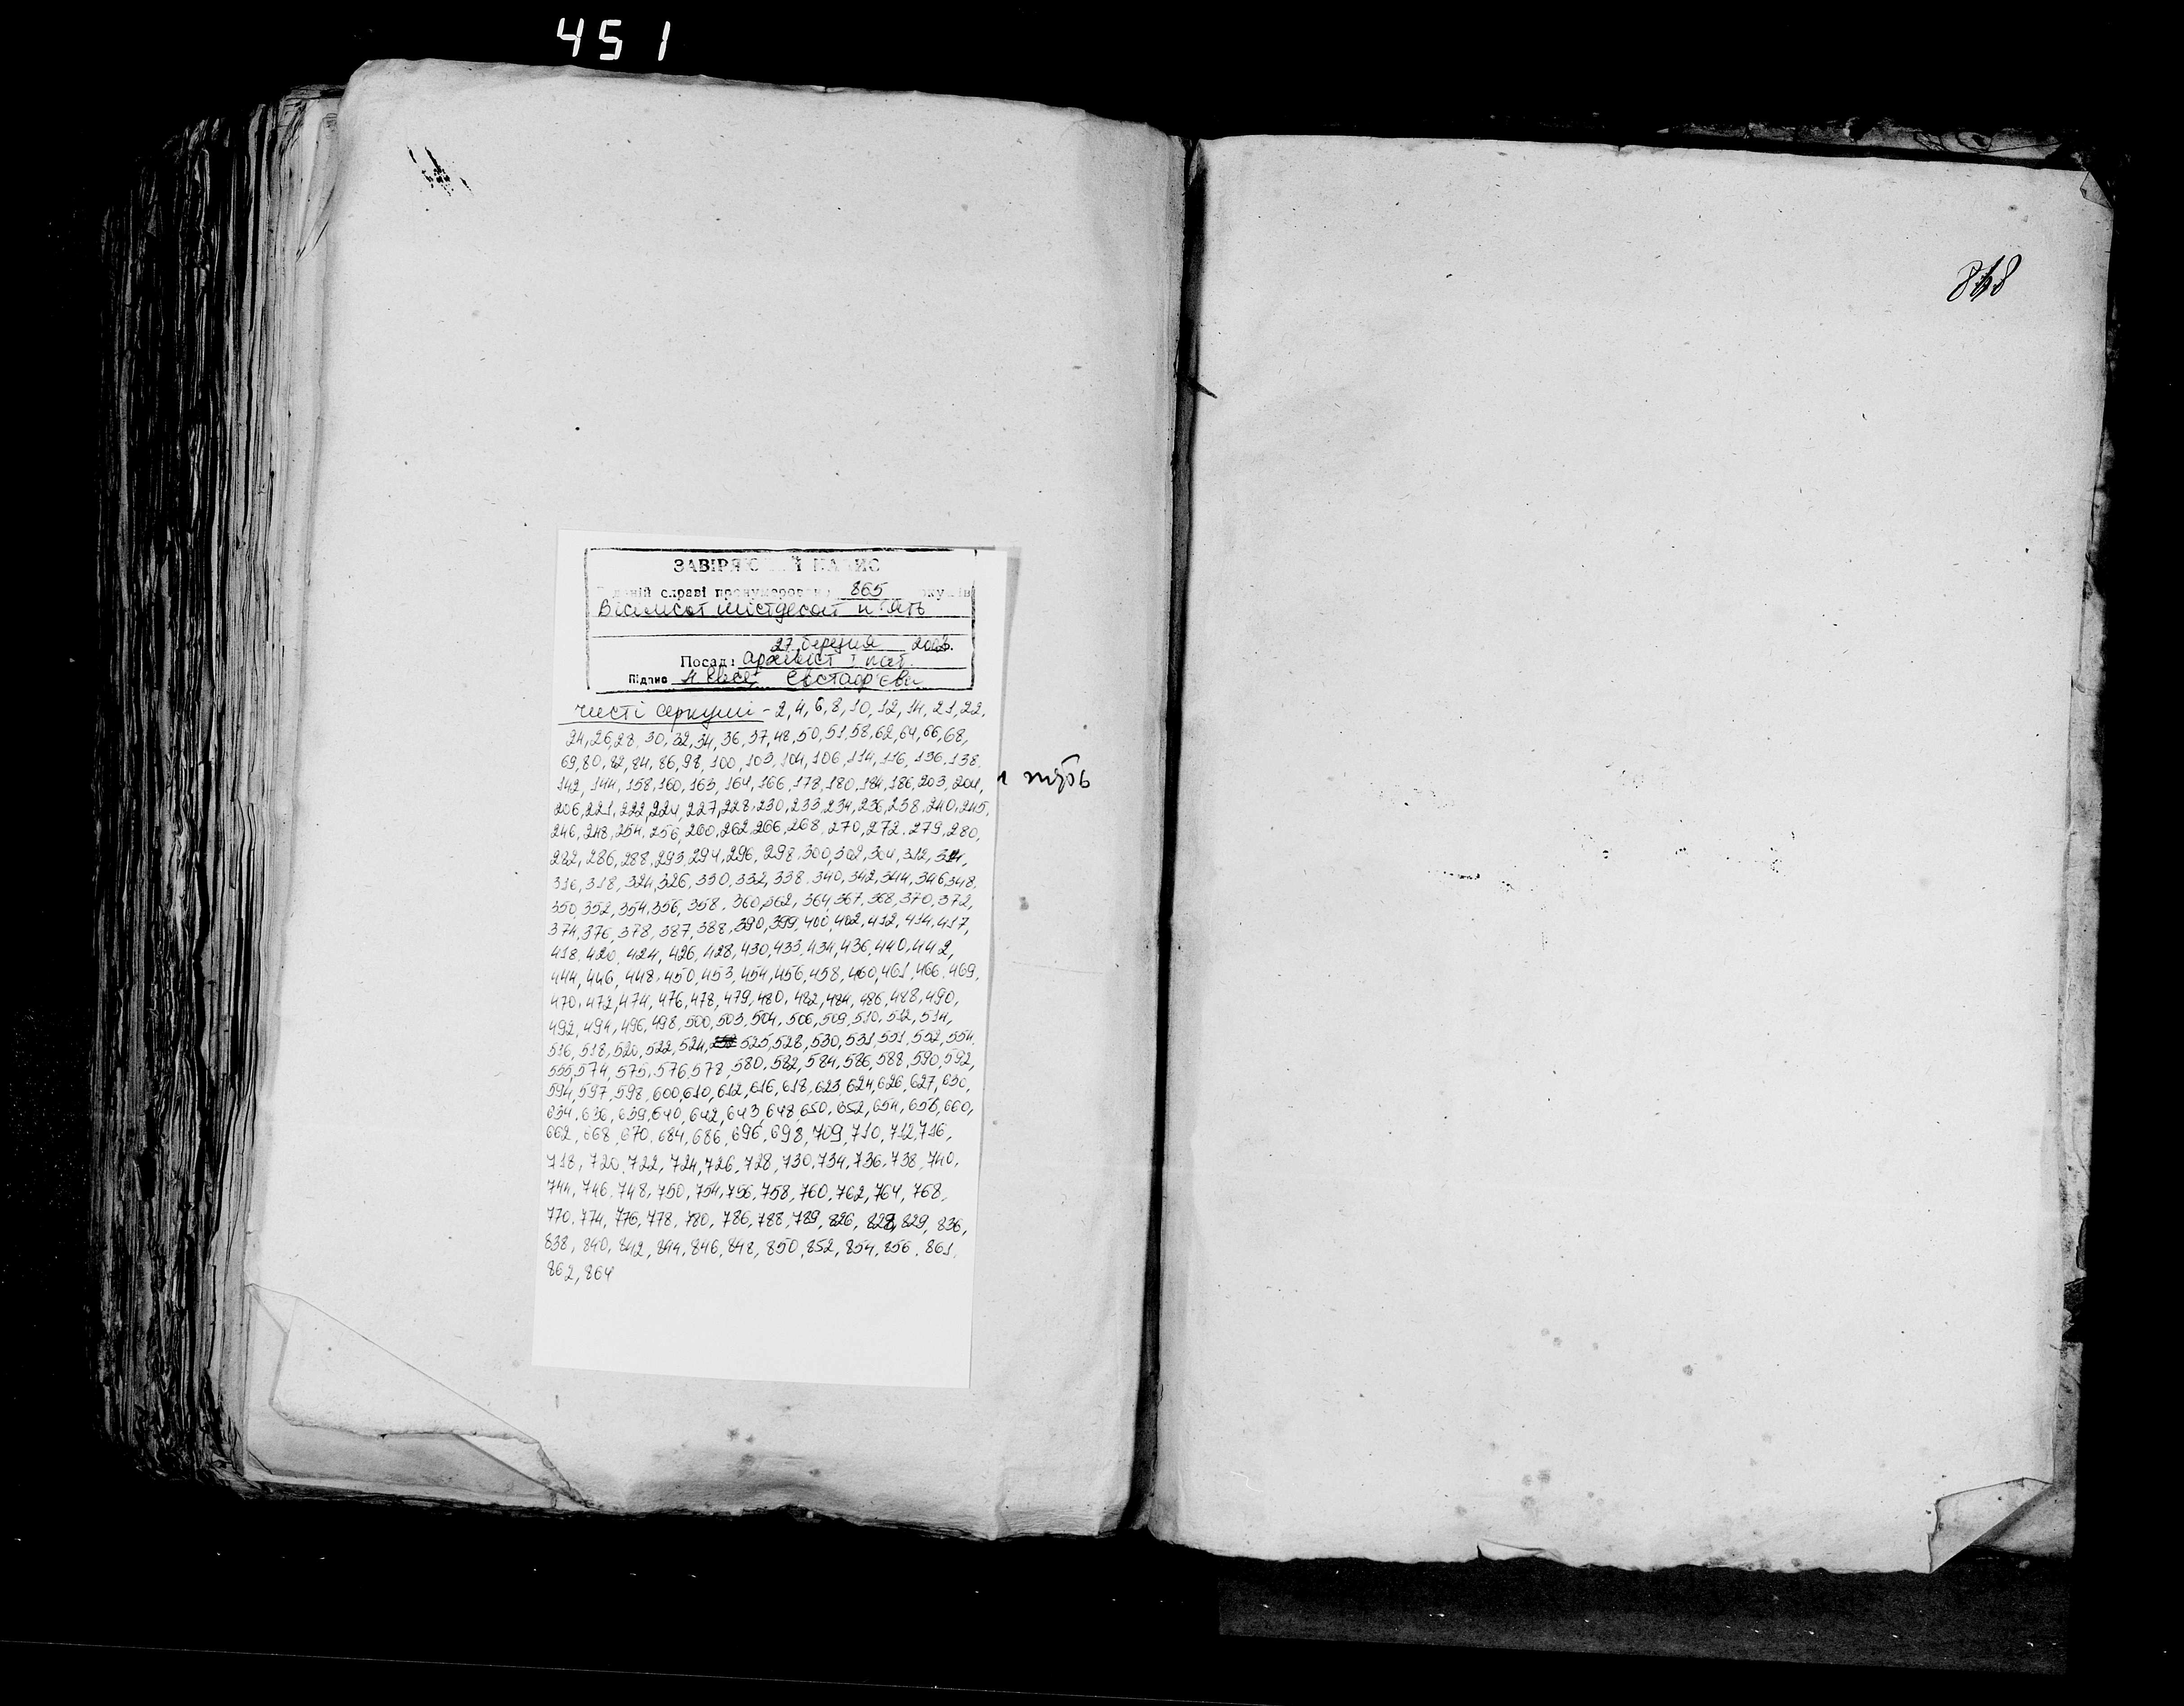 451
ЗАВІРЯЮЧИЙ НАПИС
В даній справі пронумеровано 865 аркушів
Вісімсот шістдесят п'ять
27 березня 2003.
Посада архівіст І кат.
Підпис Євстаф'єва
чисті аркуші - 2, 4, 6, 8, 10, 12, 14, 21, 22,
24, 26, 28, 30, 32, 34, 36, 37, 48, 50, 51, 58, 62, 64, 66, 68,
69, 80, 82, 84, 86, 98, 100, 103, 104, 106, 114, 116, 136, 138,
142, 144, 158, 160, 163, 164, 166, 178, 180, 184, 186, 203, 204,
206, 221, 222, 224, 227, 228, 230, 233, 234, 236, 238, 240, 245,
246, 248, 254, 256, 260, 262, 266, 268, 270, 272, 279, 280,
282, 286, 288, 293, 294, 296, 298, 300, 302, 304, 312, 314,
316, 318, 324, 326, 330, 332, 338, 340, 342, 344, 346, 348,
350, 352, 354, 356, 358, 360, 362, 364, 367, 368, 370, 372,
374, 376, 378, 387, 388, 390, 399, 400, 402, 412, 414, 417,
418, 420, 424, 426, 428, 430, 433, 434, 436, 440, 442,
444, 446, 448, 450, 453, 454, 456, 458, 460, 461, 466, 469,
470, 472, 474, 476, 478, 479, 480, 482, 484, 486, 488, 490,
492, 494, 496, 498, 500, 503, 504, 506, 509, 510, 512, 514,
516, 518, 520, 522, 524, 525, 528, 530, 531, 551, 552, 554,
555, 574, 575, 576, 578, 580, 582, 584, 586, 588, 590, 592,
594, 597, 598, 600, 610, 612, 616, 618, 623, 624, 626, 627, 630,
634, 636, 639, 640, 642, 643, 648, 650, 652, 654, 656, 660,
662, 668, 670, 684, 686, 696, 698, 709, 710, 712, 716,
718, 720, 722, 724, 726, 728, 730, 734, 736, 738, 740,
744, 746, 748, 750, 754, 756, 758, 760, 762, 764, 768,
770, 774, 776, 778, 780, 786, 788, 789, 826, 828, 829, 836,
838, 840, 842, 844, 846, 848, 850, 852, 854, 856, 861,
862, 864